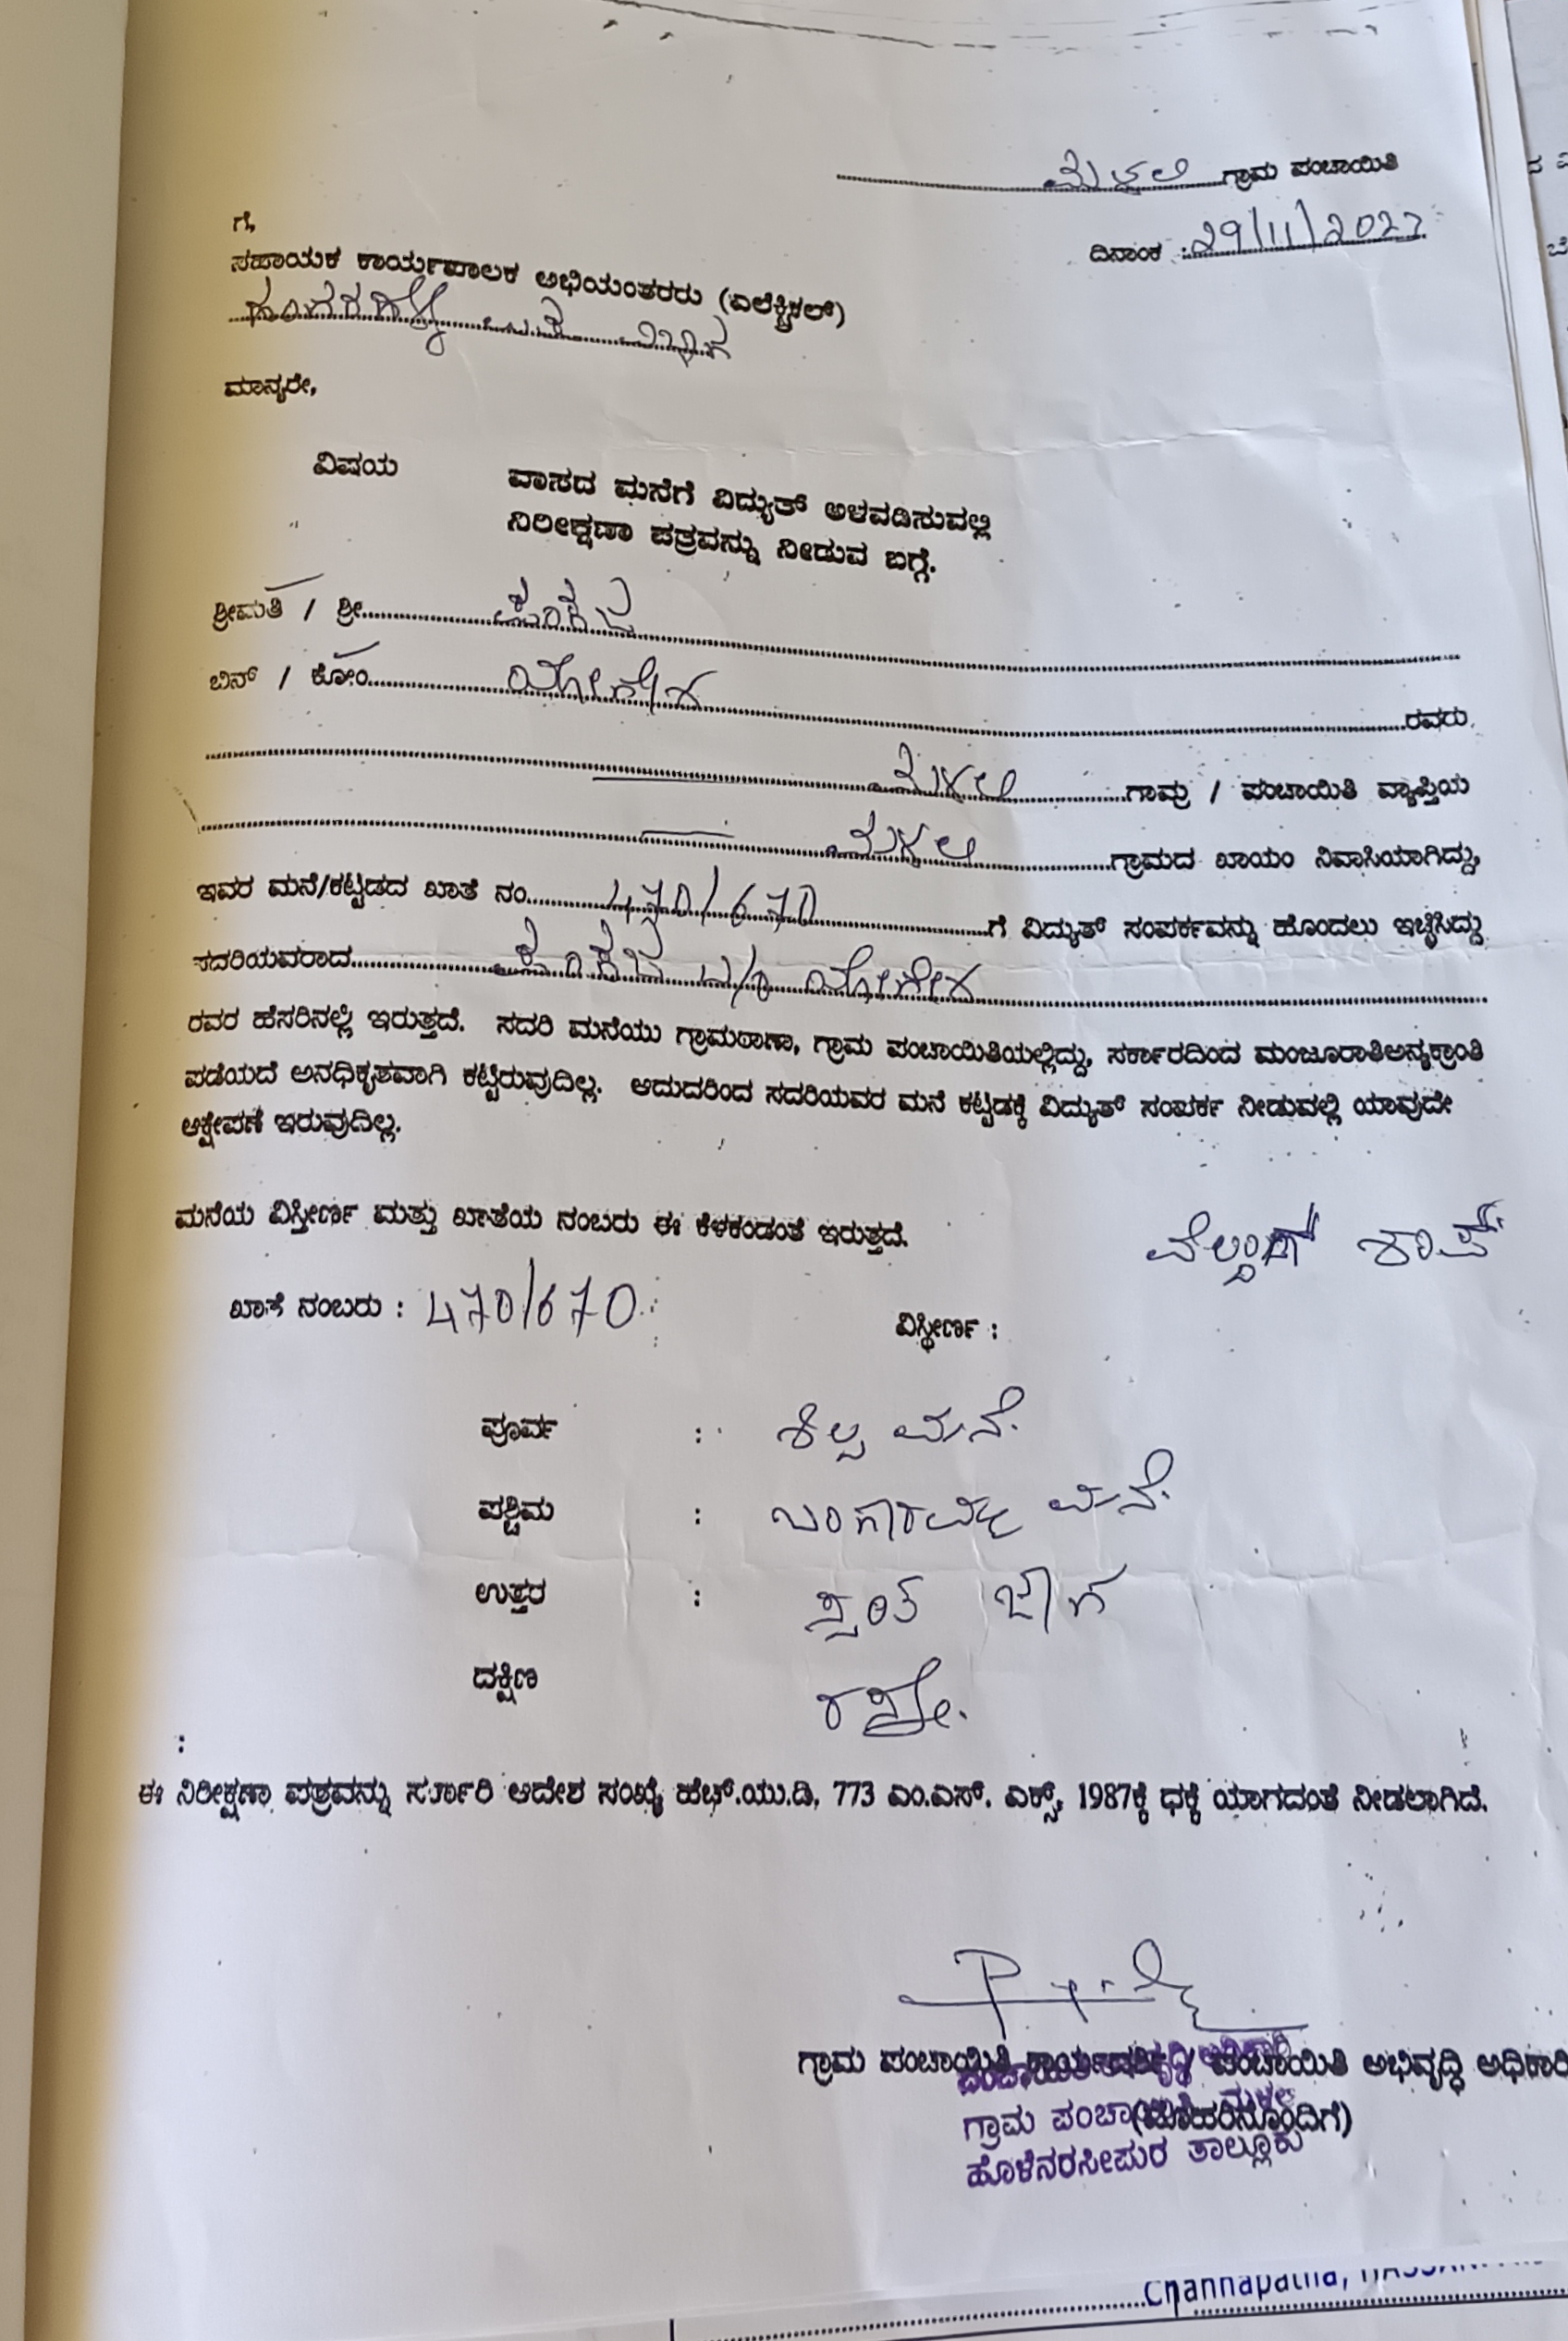 ಮಳಲಿ ಗ್ರಾಮ ಪಂಚಾಯಿತಿ
ದಿನಾಂಕ : 29/11/2023
ಗೆ,
ಸಹಾಯಕ ಕಾರ್ಯಪಾಲಕ ಅಭಿಯಂತರರು (ಎಲೆಕ್ಟ್ರಿಕಲ್)
ಮಾನ್ಯರೇ,
ವಿಷಯ ವಾಸದ ಮನೆಗೆ ವಿದ್ಯುತ್ ಅಳವಡಿಸುವಲ್ಲಿ
ನಿರೀಕ್ಷಣಾ ಪತ್ರವನ್ನು ನೀಡುವ ಬಗ್ಗೆ.
ಶ್ರೀಮತಿ / ಶ್ರೀ
ಬಿನ್ / ಕೋಂ ಯೋಗೇಶ ರವರು
ಮಳಲಿ ಗಾಮ್ರ / ಪಂಚಾಯಿತಿ ವ್ಯಾಪ್ತಿಯ
ಮಳಲಿ ಗ್ರಾಮದ ಖಾಯಂ ನಿವಾಸಿಯಾಗಿದ್ದು,
ಇವರ ಮನೆ/ಕಟ್ಟಡದ ಖಾತೆ ನಂ 470/670 ಗೆ ವಿದ್ಯುತ್ ಸಂಪರ್ಕವನ್ನು ಹೊಂದಲು ಇಚ್ಛಿಸಿದ್ದು
ಸದರಿಯವರಾದ ಯೋಗೇಶ
ರವರ ಹೆಸರಿನಲ್ಲಿ ಇರುತ್ತದೆ. ಸದರಿ ಮನೆಯು ಗ್ರಾಮಠಾಣಾ, ಗ್ರಾಮ ಪಂಚಾಯಿತಿಯಲ್ಲಿದ್ದು, ಸರ್ಕಾರದಿಂದ ಮಂಜೂರಾತಿಅನ್ಯಕ್ರಾಂತಿ
ಪಡೆಯದೆ ಅನಧಿಕೃತವಾಗಿ ಕಟ್ಟಿರುವುದಿಲ್ಲ. ಆದುದರಿಂದ ಸದರಿಯವರ ಮನೆ ಕಟ್ಟಡಕ್ಕೆ ವಿದ್ಯುತ್ ಸಂಪರ್ಕ ನೀಡುವಲ್ಲಿ ಯಾವುದೇ
ಆಕ್ಷೇಪಣೆ ಇರುವುದಿಲ್ಲ.
ಮನೆಯ ವಿಸ್ತೀರ್ಣ ಮತ್ತು ಖಾತೆಯ ನಂಬರು ಈ ಕೆಳಕಂಡಂತೆ ಇರುತ್ತದೆ.
ವೆಲ್ಡಿಂಗ್ ಶಾಪ್
ಖಾತೆ ನಂಬರು : 470/670
ವಿಸ್ತೀರ್ಣ :
ಪೂರ್ವ : ಶಿಲ್ಪ ಮನೆ.
ಪಶ್ಚಿಮ : ಬಂಗಾರಮ್ಮ ಮನೆ.
ಉತ್ತರ : ಸ್ವಂತ ಜಾಗ
ದಕ್ಷಿಣ ರಸ್ತೆ.
:
ಈ ನಿರೀಕ್ಷಣಾ ಪತ್ರವನ್ನು ಸರ್ಕಾರಿ ಆದೇಶ ಸಂಖ್ಯೆ ಹೆಚ್.ಯು.ಡಿ. 773 ಎಂ.ಎಸ್. ಎಕ್ಸ್, 1987ಕ್ಕೆ ಧಕ್ಕೆ ಯಾಗದಂತೆ ನೀಡಲಾಗಿದೆ.
ಗ್ರಾಮ ಪಂಚಾಯಿತಿ ಕಾರ್ಯದರ್ಶಿ / ಪಂಚಾಯಿತಿ ಅಭಿವೃದ್ಧಿ ಅಧಿಕಾರಿ
(ಮೊಹರಿನೊಂದಿಗೆ)
ಗ್ರಾಮ ಪಂಚಾಯಿತಿ ಮಳಲಿ
ಹೊಳೆನರಸೀಪುರ ತಾಲ್ಲೂಕು
Channapatna,